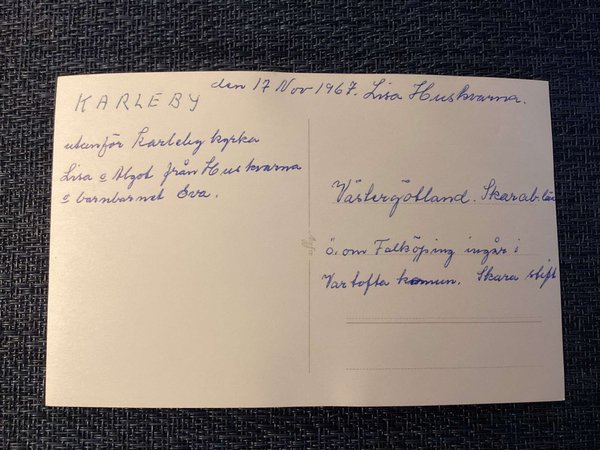 KARLEBY den 17 Nov 1967. Lisa Huskvarna.
utanför Karleby kyrka
Lisa o Algot från Huskvarna
o barnbarnet Eva.
Västergötland. Skarab. län
ö. om Falköping ingår i
Vartofta komun. Skara stift
Agfa